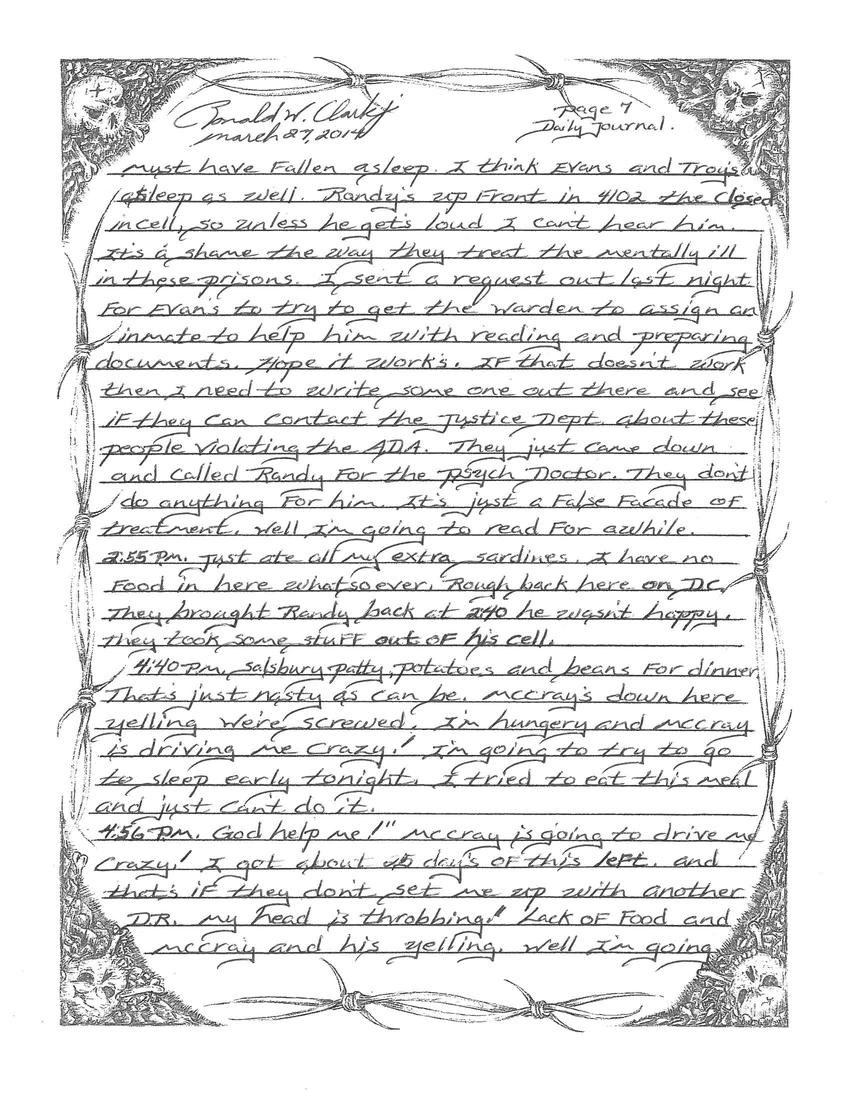 Ronald W. Clark jr
page 7
march 27, 2014
Daily Journal.
must have Fallen asleep. I think Evans and Troy's
asleep as well. Randy's up Front in 4102 the Closed
in cell, so unless he get's loud I can't hear him.
It's a shame the way they treat the mentally ill
in these prisons. I sent a request out last night
For Evan's to try to get the warden to assign an
inmate to help him with reading and preparing
documents. Hope it work's. IF that doesn't work
then I need to write some one out there and see
iF they can contact the Justice Dept. about these
people violating the ADA. They just came down
and called Randy For the psych Doctor. They don't
do anything For him. It's just a False Facade oF
treatment. Well I'm going to read For awhile.
2:55 P.M. Just ate all my extra sardines. I have no
Food in here whatsoever. Rough back here on D.C.
They brought Randy back at 2:40 he wasn't happy.
they took some stuFF out oF his cell.
4:40 P.M. salsbury patty, potatoes and beans For dinner
That's just nasty as can be. McCray's down here
yelling we're screwed. I'm hungery and McCray
is driving me crazy! I'm going to try to go
to sleep early tonight. I tried to eat this meal
and just can't do it.
4:56 P.M. God help me!" McCray is going to drive me
crazy! I got about 25 day's oF this left. and
that's iF they don't set me up with another
D.R. my head is throbbing! Lack oF Food and
McCray and his yelling. Well I'm going